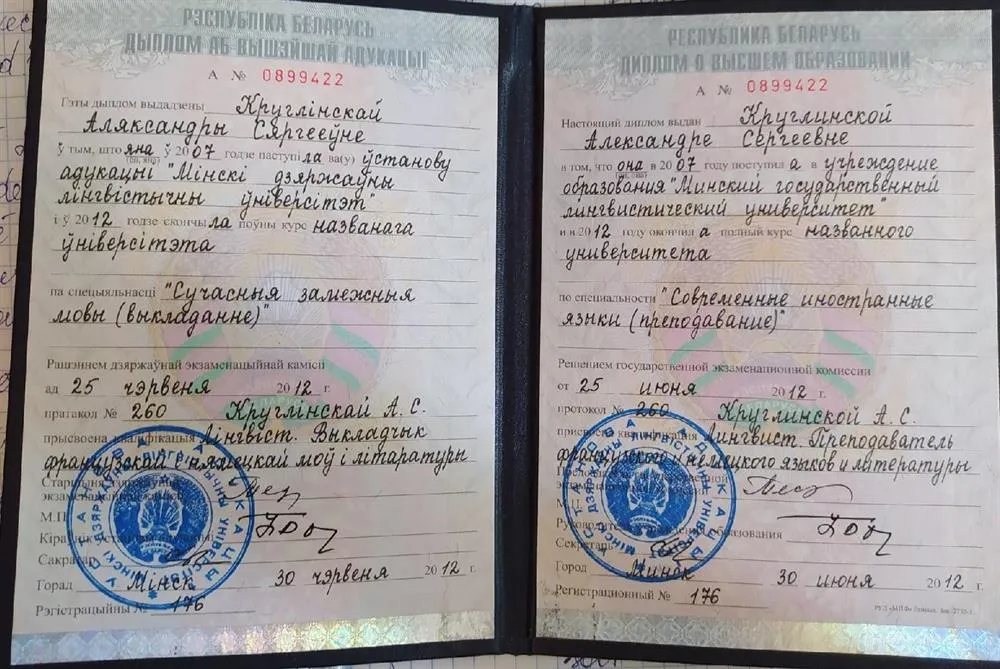 РЭСПУБЛІКА БЕЛАРУСЬ
ДЫПЛОМ АБ ВЫШЭЙШАЙ АДУКАЦЫІ
А № 0899422
Гэты дыплом выдадзены Круглінскай
Аляксандры Сяргееўне
ў тым, што яна ў 2007 годзе паступіла ва(у) ўстанову
(ён, яна)
адукацыі "Мінскі дзяржаўны
лінгвістычны ўніверсітэт"
і ў 2012 годзе скончыла поўны курс названага
ўніверсітэта
па спецыяльнасці "Сучасныя замежныя
мовы (выкладанне)"
Рашэннем дзяржаўнай экзаменацыйнай камісіі
ад 25 чэрвеня 2012 г.
пратакол № 260 Круглінскай А. С.
прысвоена кваліфікацыя Лінгвіст. Выкладчык
французскай і нямецкай моў і літаратуры
Старшыня дзяржаўнай
экзаменацыйнай камісіі
М.П.
Кіраўнік установы адукацыі
Сакратар
Горад Мінск 30 чэрвеня 2012 г.
Рэгістрацыйны № 176
РЕСПУБЛИКА БЕЛАРУСЬ
ДИПЛОМ О ВЫСШЕМ ОБРАЗОВАНИИ
А № 0899422
Настоящий диплом выдан Круглинской
Александре Сергеевне
в том, что она в 2007 году поступила в учреждение
образования "Минский государственный
лингвистический университет"
и в 2012 году окончила полный курс названного
университета
по специальности "Современные иностранные
языки (преподавание)"
Решением государственной экзаменационной комиссии
от 25 июня 2012 г.
протокол № 260 Круглинской А. С.
присвоена квалификация Лингвист. Преподаватель
французского и немецкого языков и литературы
М.П.
Руководитель образования
Секретарь
Город Минск 30 июня 2012 г.
Регистрационный № 176